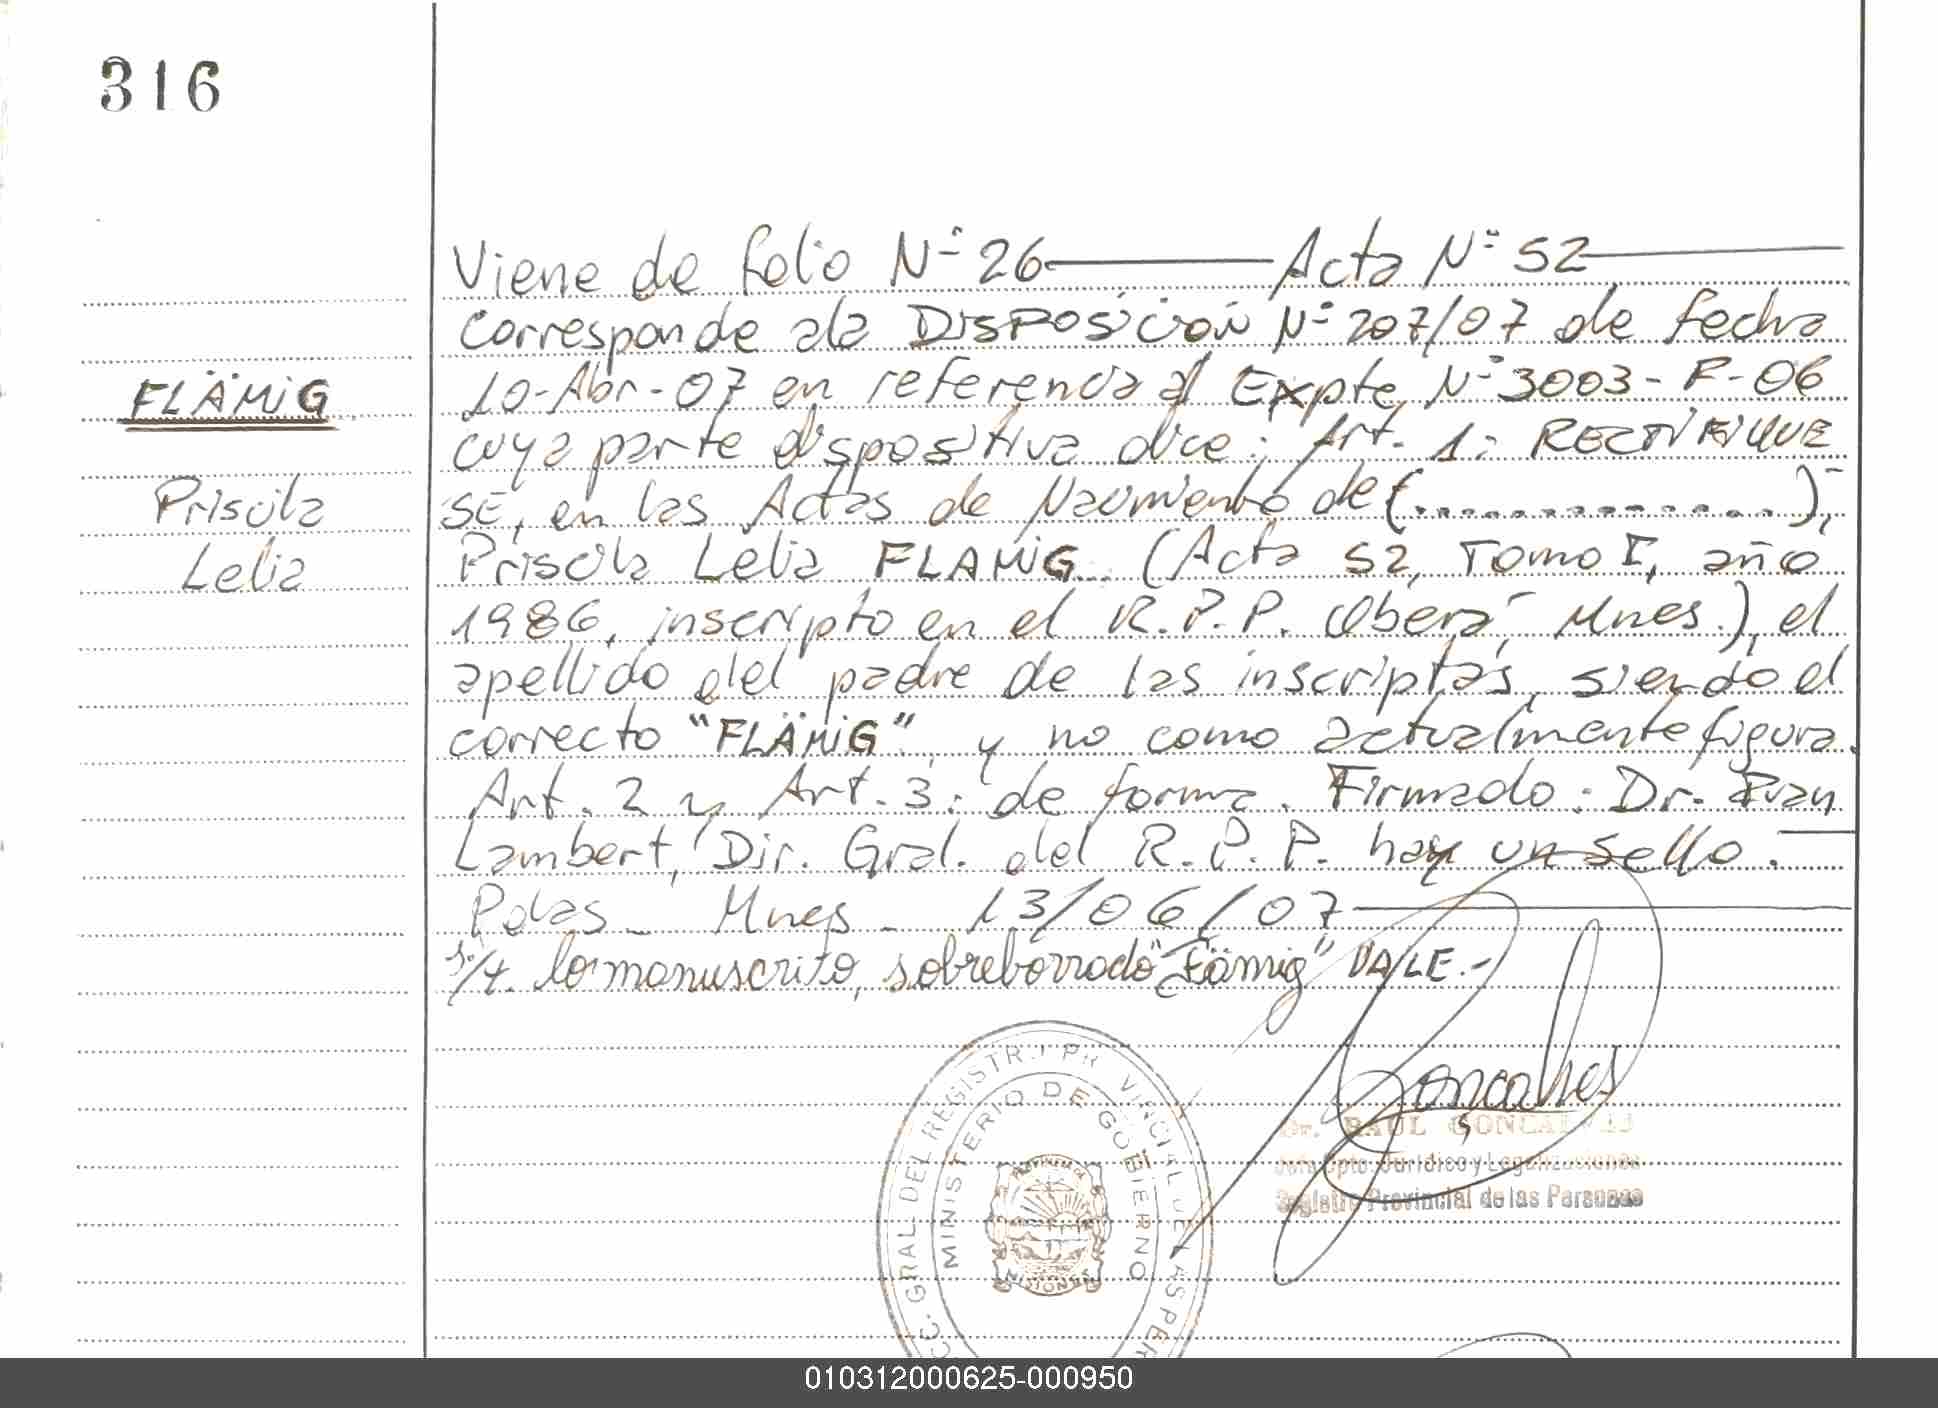 316
FLÄMIG
Priscila
Lelia
Viene de folio N° 26 Acta N° 52
Corresponde a la DISPOSICION N° 207/07 de fecha
10-Abr-07 en referencia al Expte N° 3003-F-06
cuya parte dispositiva dice: Art. 1: RECTIFIQUE
SE, en las Actas de Nacimiento de (..............),
Priscila Lelia FLAMIG (Acta 52, Tomo I, año
1986, inscripto en el R.P.P. Oberá, Mnes.), el
apellido del padre de las inscriptas, siendo el
correcto "FLÄMIG", y no como actualmente figura.
Art. 2 y Art. 3: de forma. Firmado: Dr.
Lambert, Dir. Gral. del R.P.P. hay un sello.
Pdas - Mnes - 13/06/07
lo manuscrito, sobreborrado VALE.-
Goncalves
Dr. RAUL GONCALVES
Jefe Dpto. Jurídico y Legalizaciones
Registro Provincial de las Personas
GRAL DEL REGISTRO PROVINCIAL DE LAS PER
MINISTERIO DE GOBIERNO
PROVINCIA DE
MISIONES
010312000625-000950